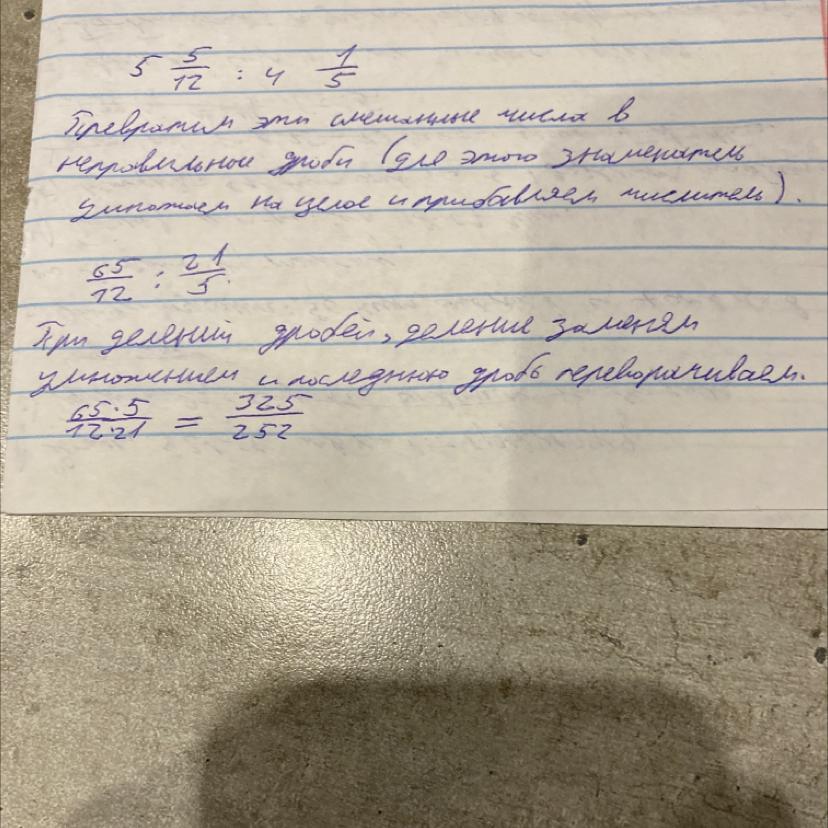 5 5/12 : 4 1/5
Превратим эти смешанные числа в
неправильные дроби (для этого знаменатель
умножаем на целое и прибавляем числитель).
65/12 : 21/5
При делений дробей, деление заменям
умножением и последнюю дробь переворачиваем.
65·5/12·21 = 325/252